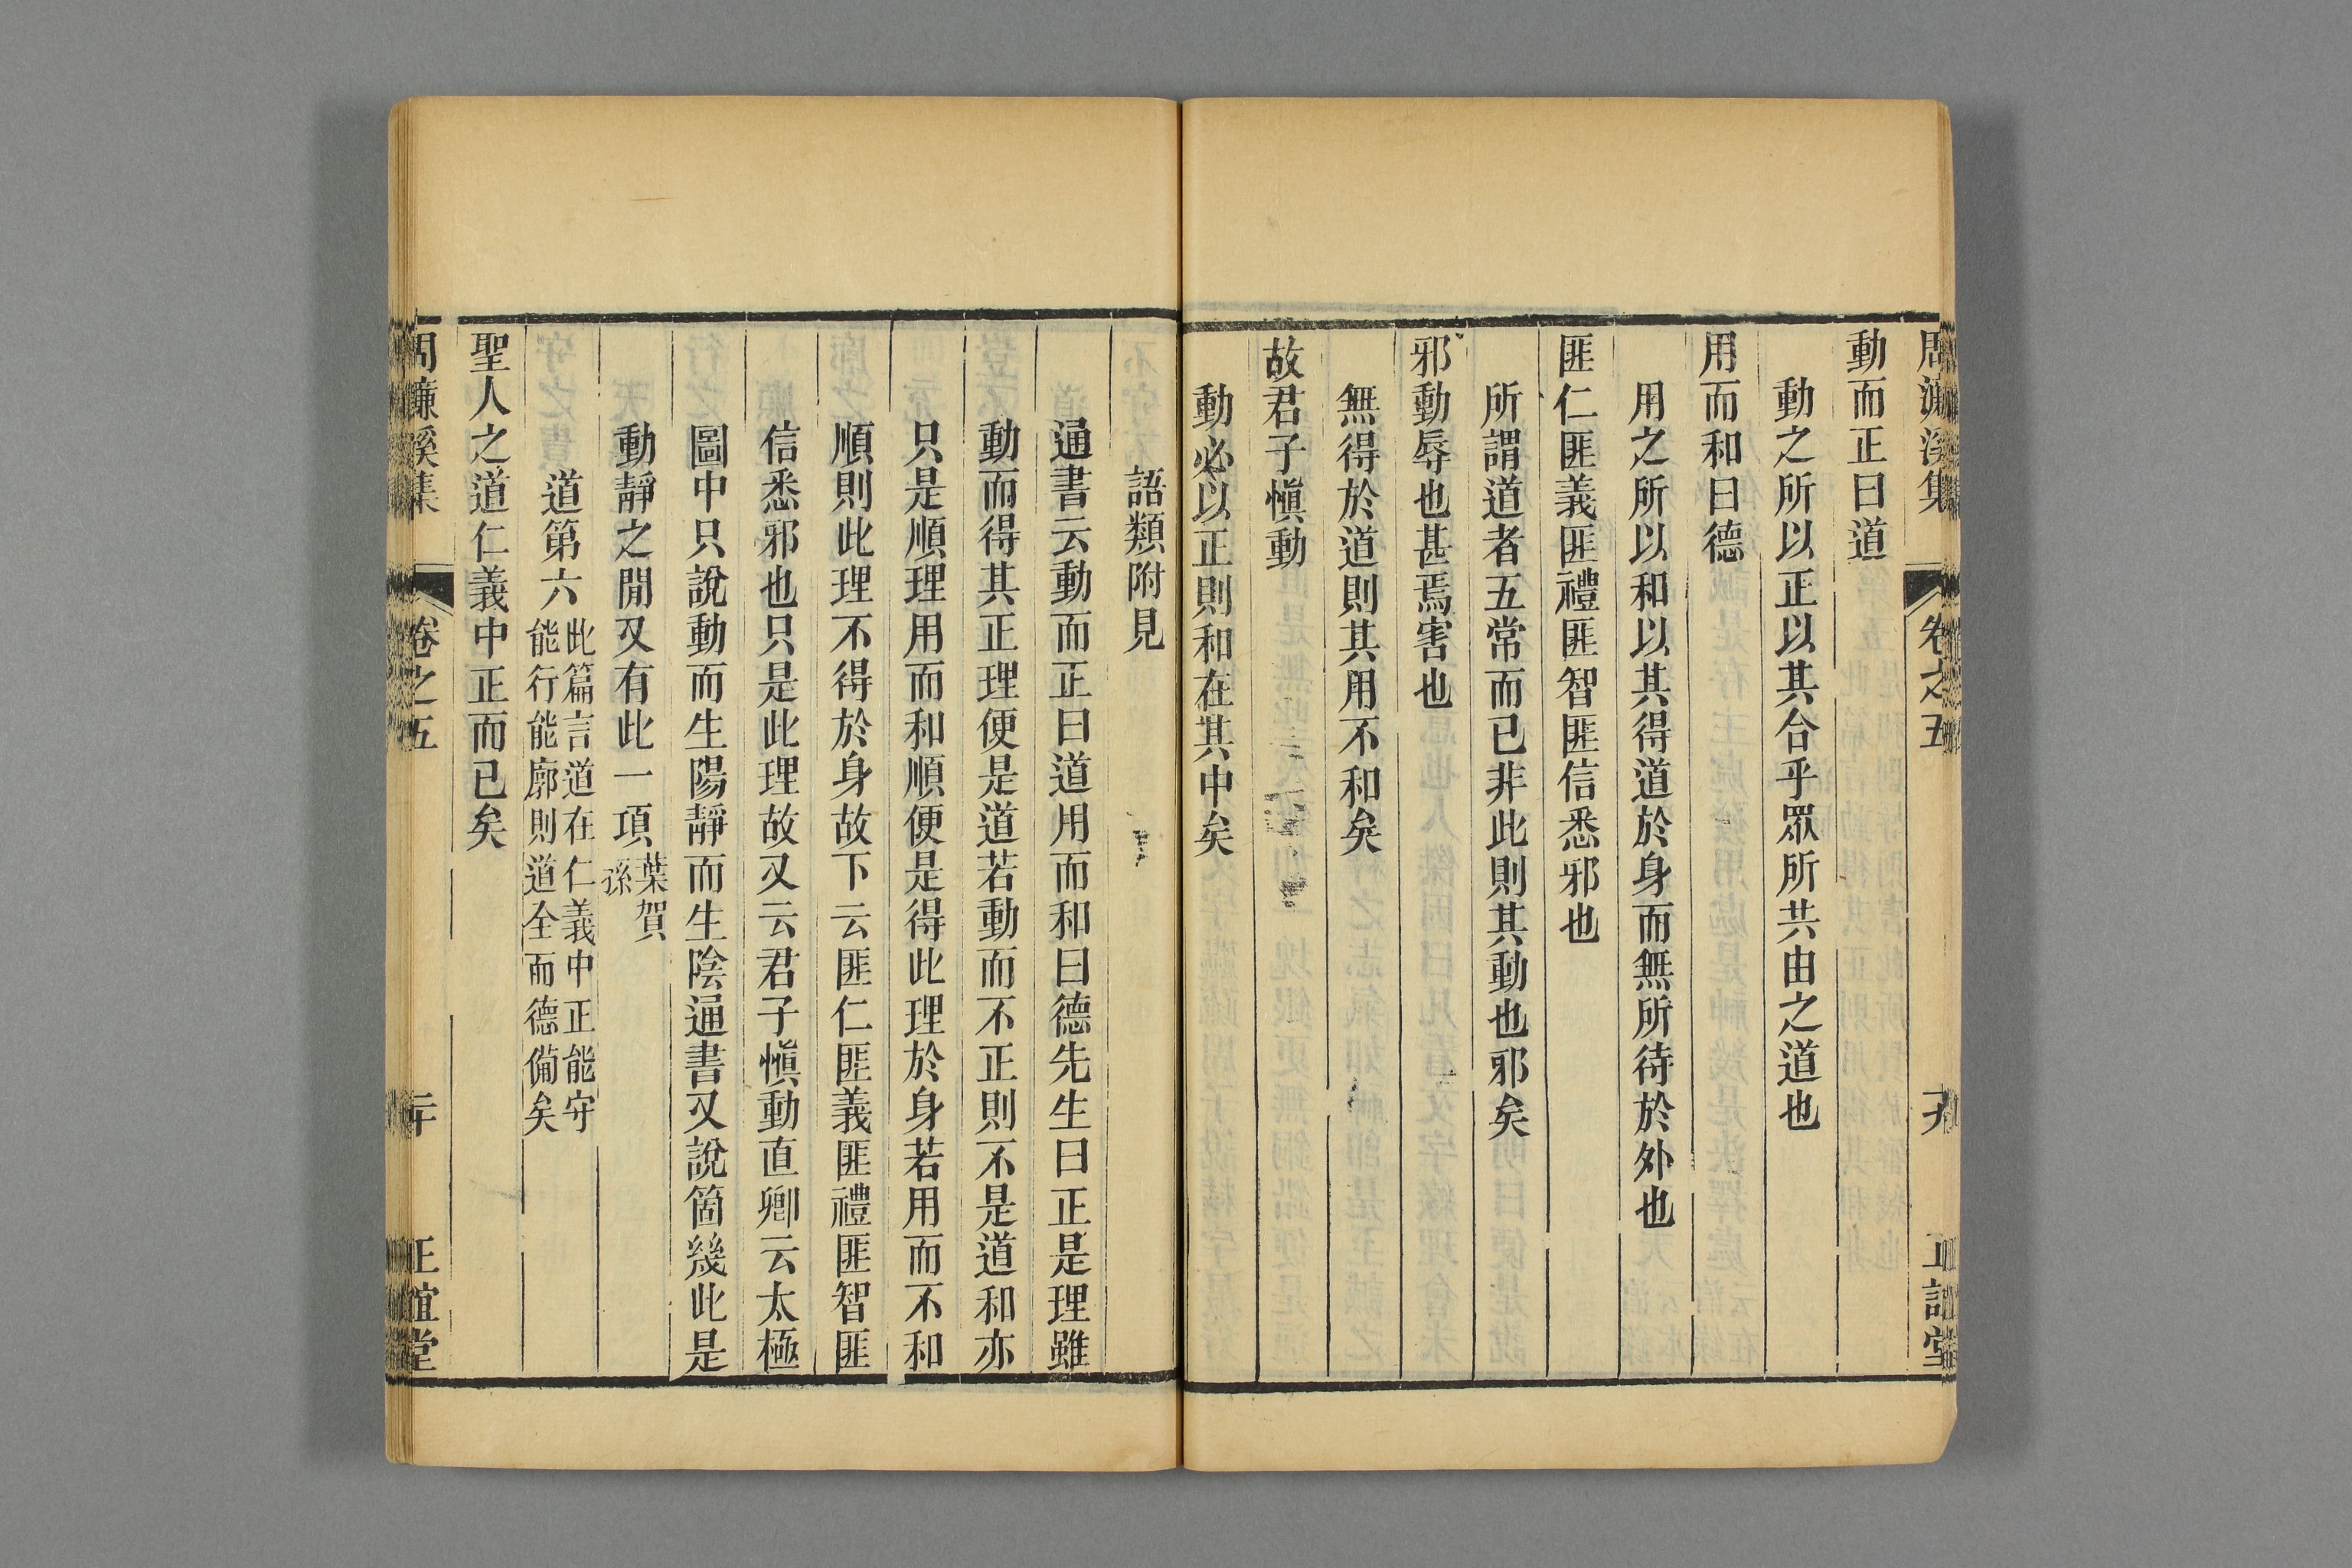 周濂溪集 卷之五 十九 正誼堂
動而正曰道
動之所以正以其合乎眾所共由之道也
用而和曰德
用之所以和以其得道於身而無所待於外也
匪仁匪義匪禮匪智匪信悉邪也
所謂道者五常而已非此則其動也邪矣
邪動辱也甚焉害也
無得於道則其用不和矣
故君子慎動
動必以正則和在其中矣
語類附見
通書云動而正曰道用而和曰德先生曰正是理雖
動而得其正理便是道若動而不正則不是道和亦
只是順理用而和順便是得此理於身若用而不和
順則此理不得於身故下云匪仁匪義匪禮匪智匪
信悉邪也只是此理故又云君子慎動直卿云太極
圖中只說動而生陽靜而生陰通書又說箇幾此是
動靜之閒又有此一項葉賀
孫
道第六此篇言道在仁義中正能守
能行能廓則道全而德備矣
聖人之道仁義中正而已矣
周濂溪集 卷之五 二十 正誼堂